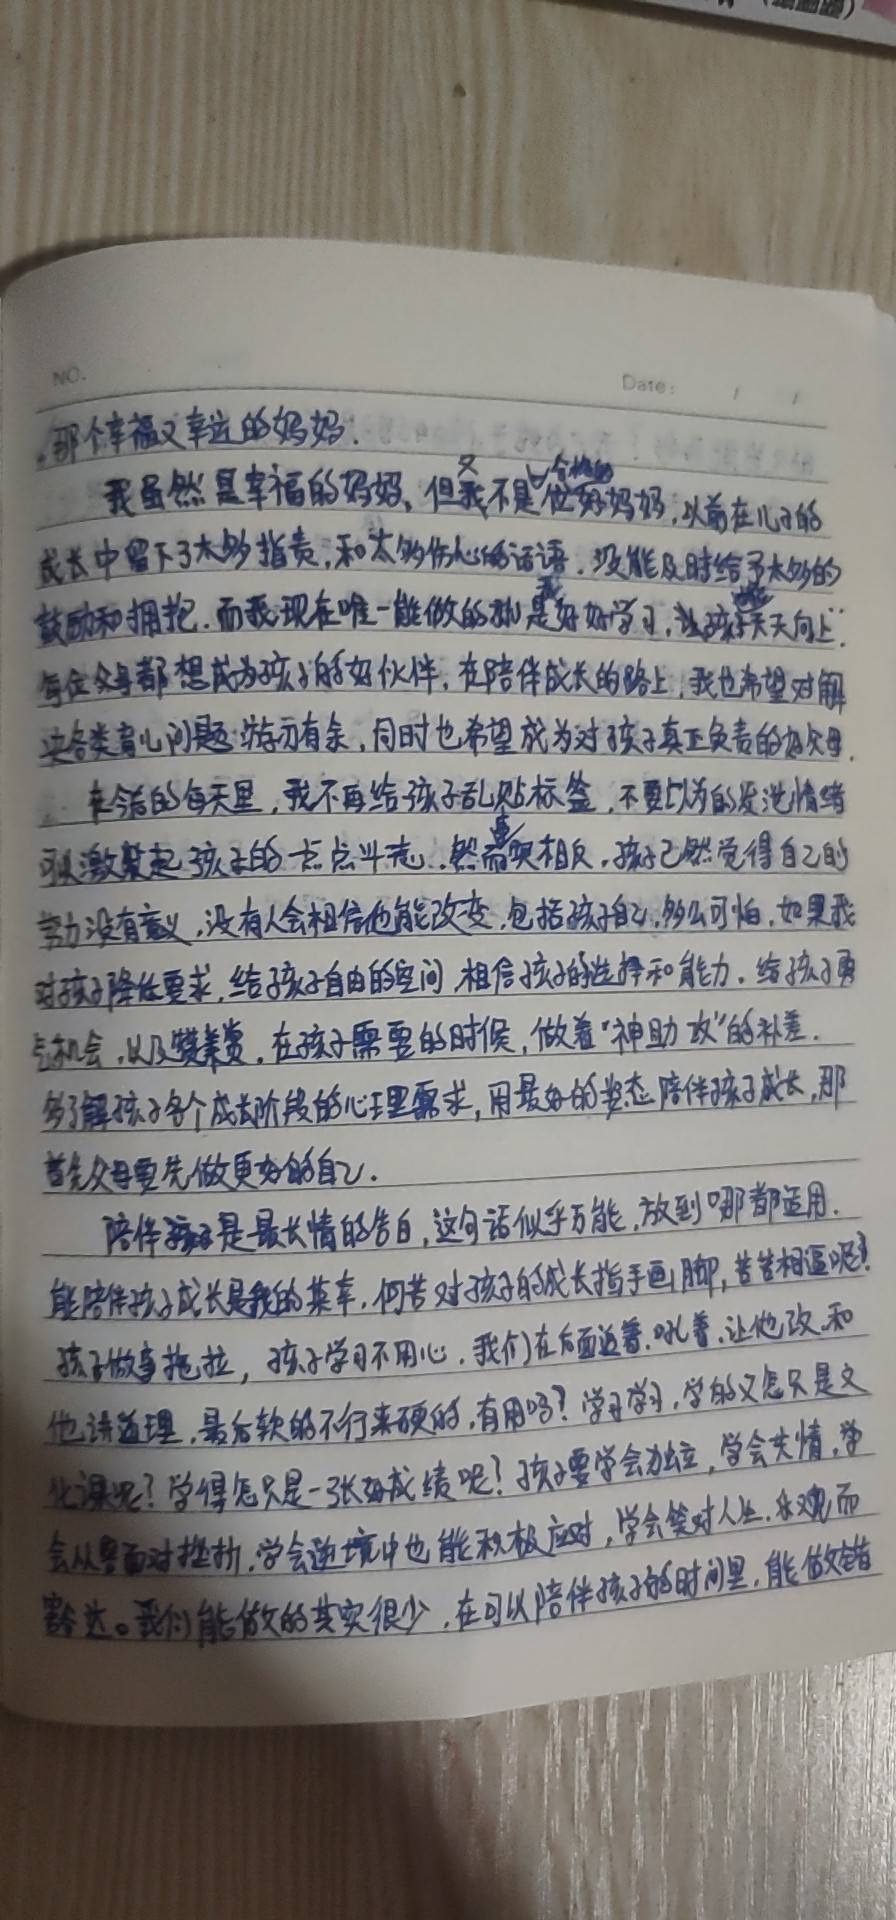 NO.
Date: / /
那个幸福又幸运的妈妈.
我虽然是幸福的妈妈,但我又不是一位合格的好妈妈,以前在儿子的
成长中留下了太多指责,和太多伤心的话语.没能及时给予太多的
鼓励和拥抱.而我现在唯一能做的就是好好学习,让孩子天天向上.
每位父母都想成为孩子的好伙伴,在陪伴成长的路上,我也希望对解
决各类育儿问题游刃有余,同时也希望成为对孩子真正负责的好父母.
在今后的每天里,我不再给孩子乱贴标签,不要以为的发泄情绪
可以激发起孩子的一点点斗志..然而事实相反,孩子已然觉得自己的
努力没有意义,没有人会相信他能改变,包括孩子自己,多么可怕,如果我
对孩子降低要求,给孩子自由的空间,相信孩子的选择和能力.给孩子勇
气机会,以及赞赏,在孩子需要的时候,做着"神助攻"的补差.
多了解孩子各个成长阶段的心理需求,用最好的姿态陪伴孩子成长,那
首先父母要先做更好的自己.
陪伴孩子是最长情的告白,这句话似乎万能,放到哪都适用.
能陪伴孩子成长是我的荣幸.何苦对孩子的成长指手画脚,苦苦相逼呢?
孩子做事拖拉,孩子学习不用心.我们在后面追着.吼着.让他改.和
他讲道理,最后软的不行来硬的,有用吗?学习学习,学的又怎只是文
化课呢?学得怎只是一张好成绩呢?孩子要学会独立,学会共情,学
会从容面对挫折.学会逆境中也能积极应对,学会笑对人生.乐观而
豁达。我们能做的其实很少,在可以陪伴孩子的时间里,能做